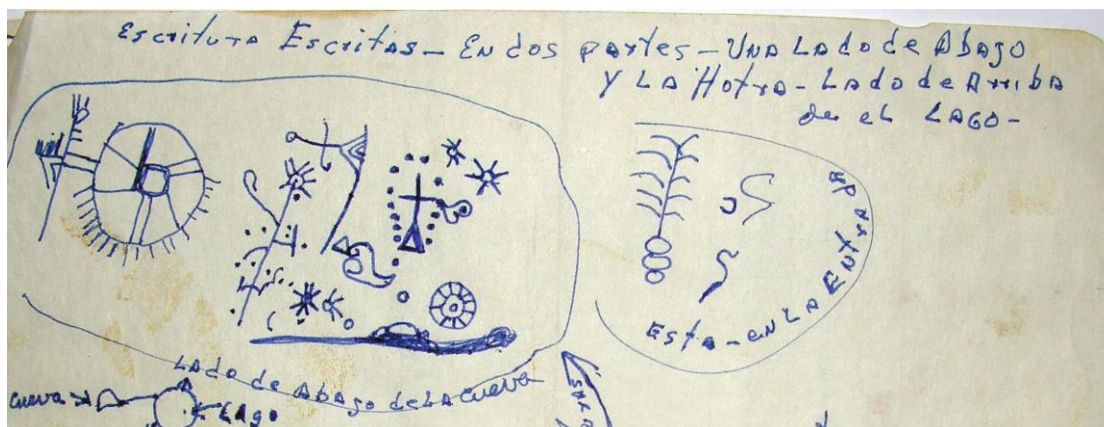 Escritura Escritas - En dos partes - Una Lado de Abajo
y La Hotra - Lado de Arriba
de el LAGO -
Esta - en LA Entrada
LAdo de Abago de LA Cueva
Cueva
LAgo